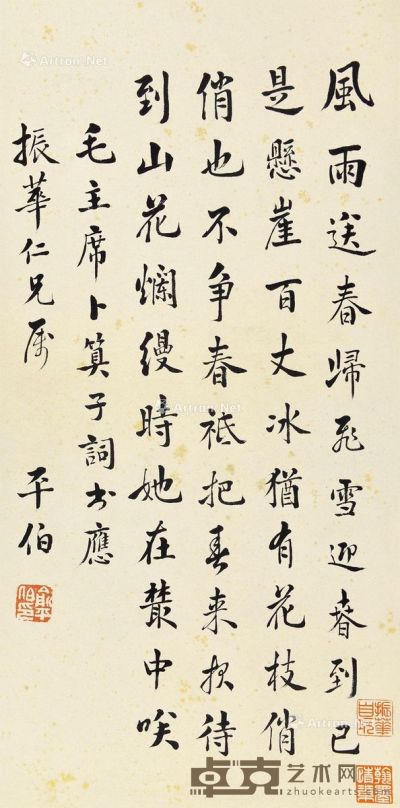 風雨送春歸飛雪迎春到已
是懸崖百丈冰猶有花枝俏
俏也不争春祗把春来报待
到山花爛縵時她在叢中咲
毛主席卜算子詞书應
振華仁兄属 平伯
俞平伯印
Artron.Net
卓克艺术网
zhuokearts.com